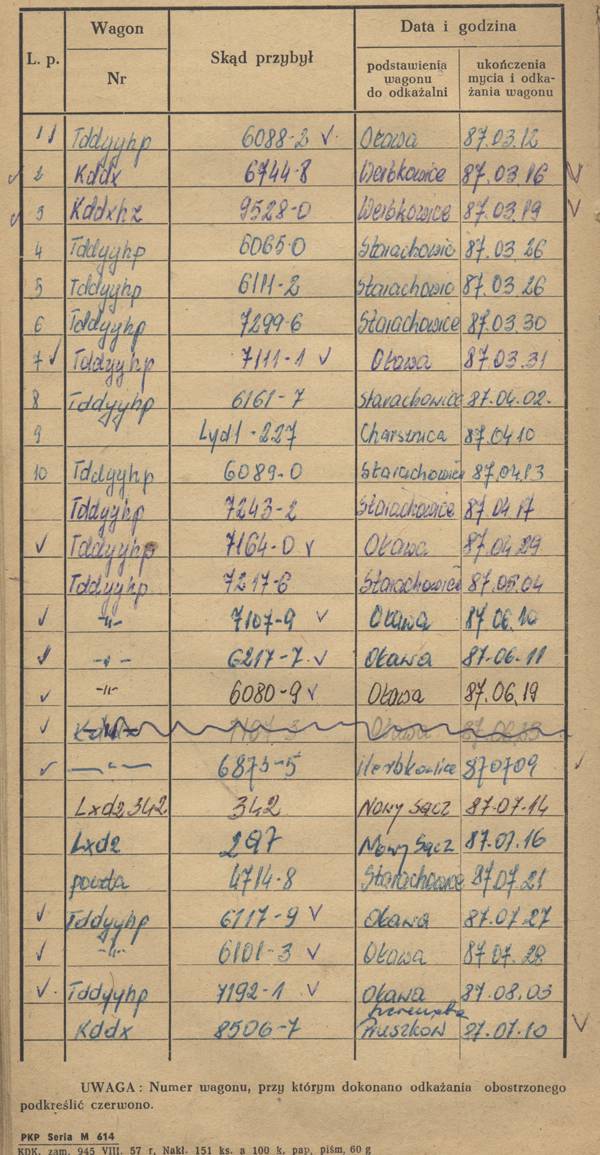 L. p. Wagon Nr Skąd przybył Data i godzina
podstawienia wagonu do odkażalni ukończenia mycia i odka-żania wagonu
1 Tddyyhp 6088-2 v Oława 87.03.12
2 Kddx 6744-8 Werbkowice 87.03.16 v
3 Kddxhz 9528-0 Werbkowice 87.03.19 v
4 Tddyyhp 6065-0 Starachowic 87.03.26
5 Tddyyhp 6111-2 Starachowic 87.03.26
6 Tddyyhp 7299-6 Starachowice 87.03.30
7 v Tddyyhp 7111-1 v Oława 87.03.31
8 Tddyyhp 6161-7 Starachowice 87.04.02.
9 Lyd1-227 Charsznica 87.04.10
10 Tddyyhp 6089-0 Starachowice 87.04.13
Tddyyhp 7243-2 Starachowice 87.04.17
v Tddyyhp 7164-0 v Oława 87.04.29
Tddyyhp 7217-6 Starachowice 87.05.04
v -"- 7107-9 v Oława 87.06.10
v -"- 6217-7 v Oława 87.06.11
v -"- 6080-9 v Oława 87.06.19
v Oława
v -"- 6875-5 Werbkowice 87.07.09
Lxd2 342 342 Nowy Sącz 87.07.14
Lxd2 297 Nowy Sącz 87.07.16
poczta 4714-8 Starachowice 87.07.21
v Tddyyhp 6117-9 v Oława 87.07.27
v -"- 6101-3 v Oława 87.07.28
v Tddyyhp 7192-1 v Oława 87.08.03
Kddx 8506-7 Pruszków 27.07.10 v
UWAGA: Numer wagonu, przy którym dokonano odkażania obostrzonego
podkreślić czerwono.
PKP Seria M 614
KDK. zam. 945 VIII. 57 r. Nakł. 151 ks. a 100 k. pap. piśm. 60 g